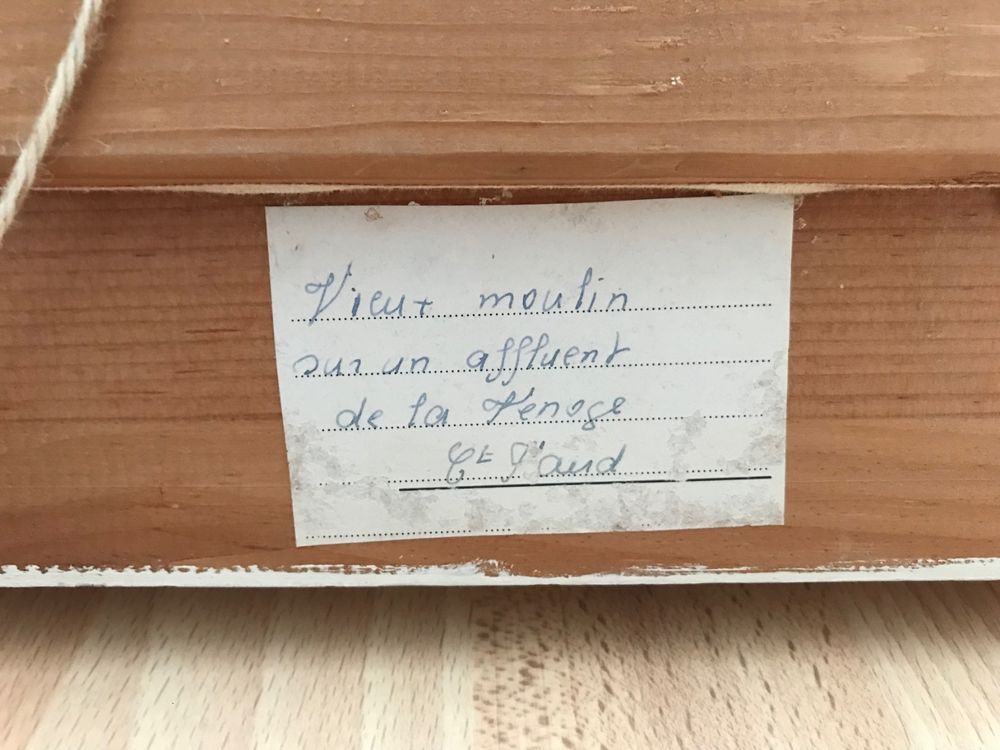 Vieux moulin
sur un affluent
de la Venoge
Ct Vaud